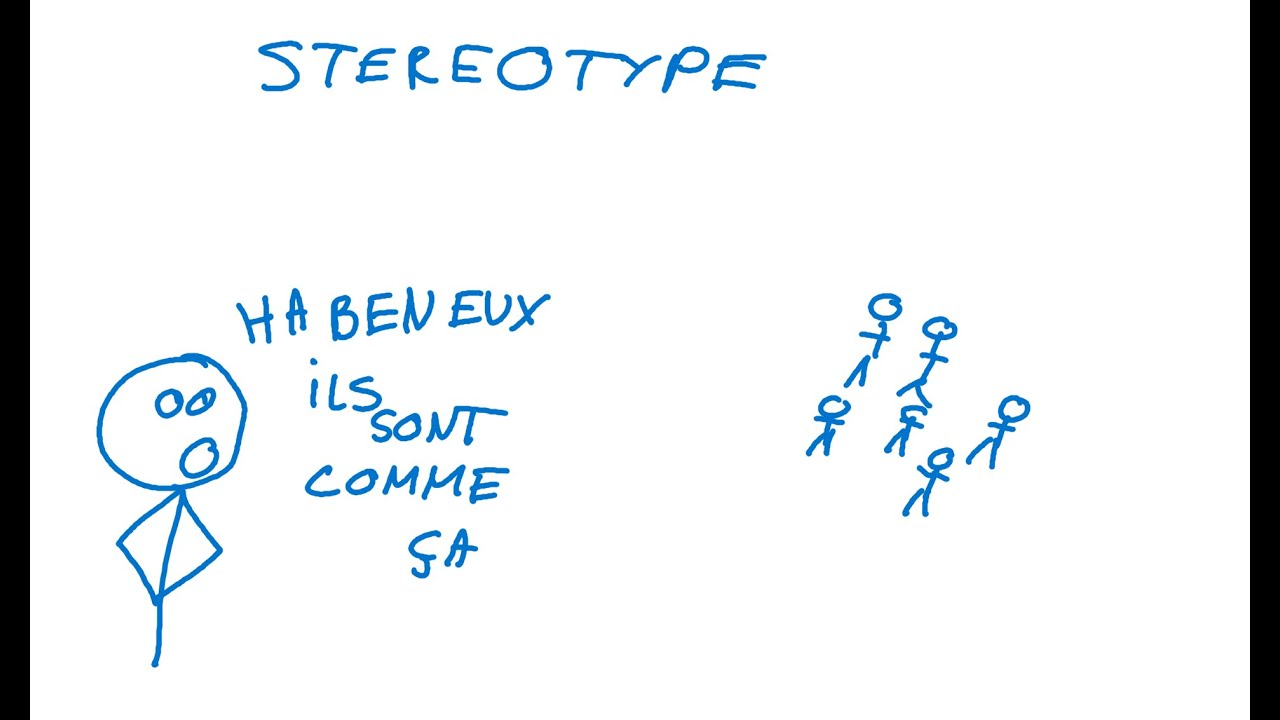 STEREOTYPE
HA BEN EUX
iLS
SONT
COMME
ÇA